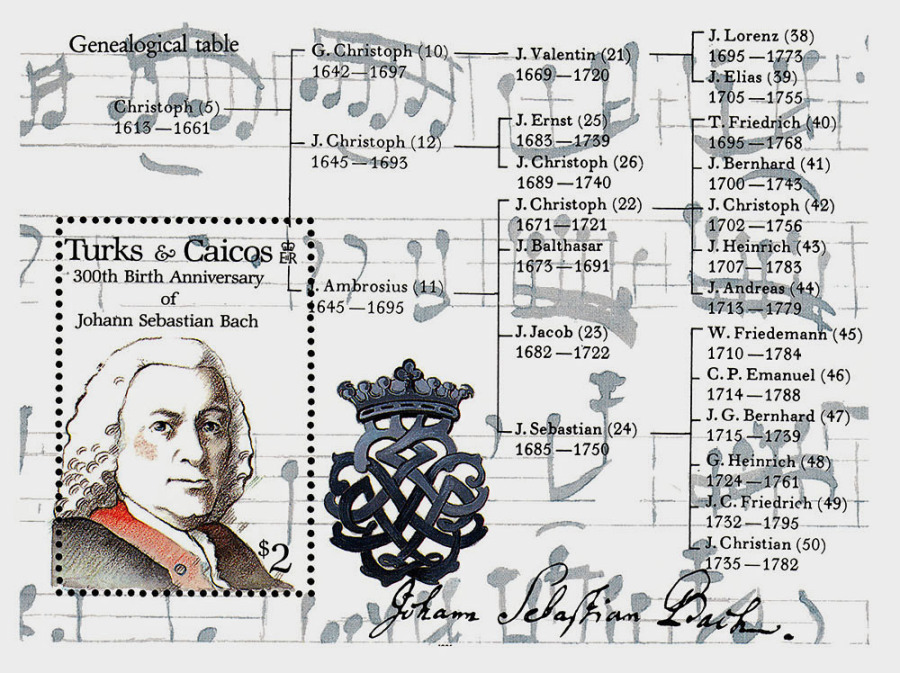 Genealogical table
Christoph (5)
1613—1661
G. Christoph (10)
1642—1697
J. Christoph (12)
1645—1693
J. Ambrosius (11)
1645—1695
J. Valentin (21)
1669—1720
J. Ernst (25)
1683—1739
J. Christoph (26)
1689—1740
J. Christoph (22)
1671—1721
J. Balthasar
1673—1691
J. Jacob (23)
1682—1722
J. Sebastian (24)
1685—1750
J. Lorenz (38)
1695—1773
J. Elias (39)
1705—1755
T. Friedrich (40)
1695—1768
J. Bernhard (41)
1700—1743
J. Christoph (42)
1702—1756
J. Heinrich (43)
1707—1783
J. Andreas (44)
1713—1779
W. Friedemann (45)
1710—1784
C. P. Emanuel (46)
1714—1788
J. G. Bernhard (47)
1715—1739
G. Heinrich (48)
1724—1761
J. C. Friedrich (49)
1732—1795
J. Christian (50)
1735—1782
Turks & Caicos
ER
300th Birth Anniversary
of
Johann Sebastian Bach
$2
Johann Sebastian Bach.